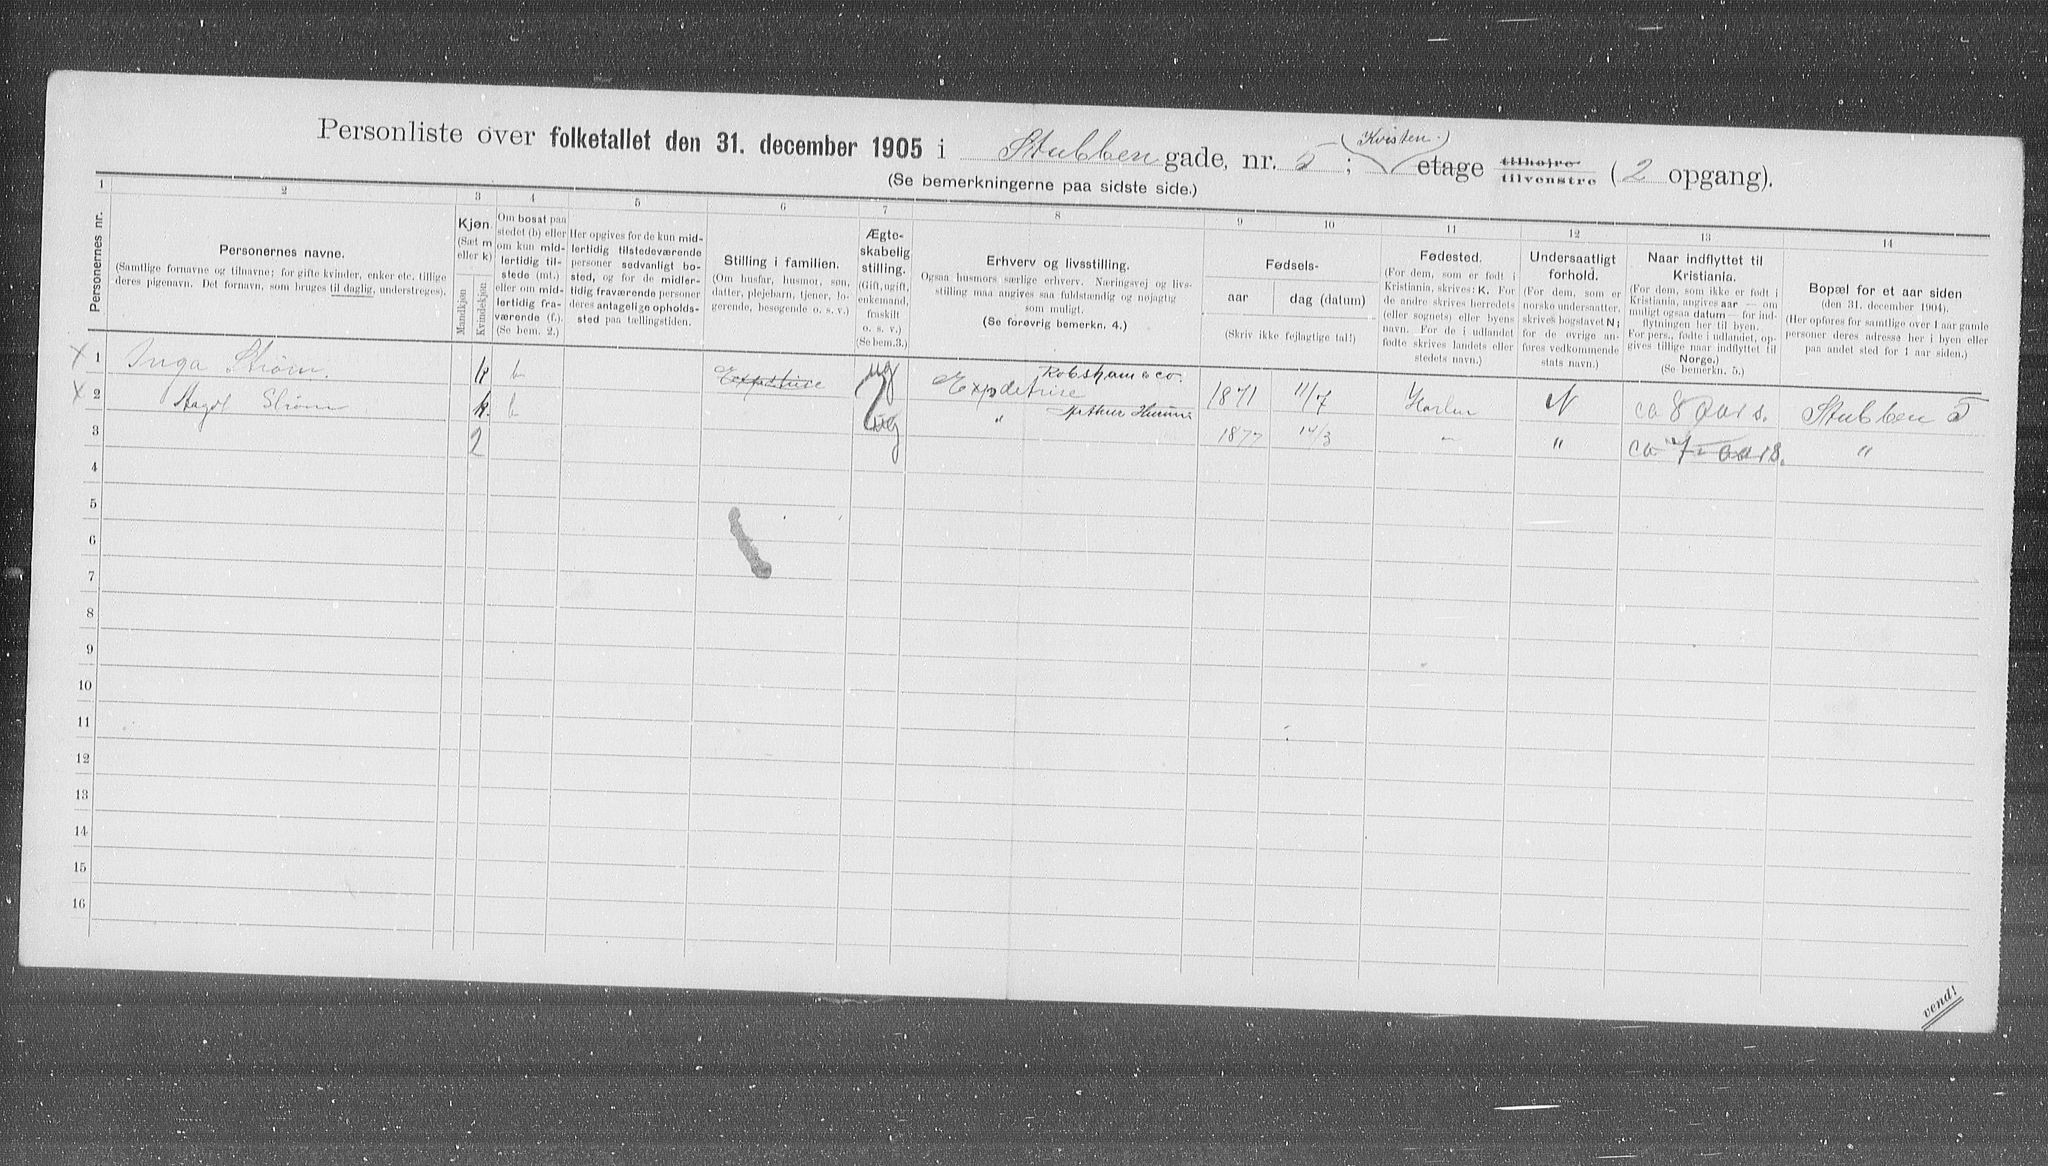 Personliste over folketallet den 31. december 1905 i Stubben gade, nr. 5; (Kvisten.) etage tilhøire tilvenstre (2 opgang).
(Se bemerkningerne paa sidste side.)
1 2 3 4 5 6 7 8 9 10 11 12 13 14
Personernes nr.
Personernes navne.
(Samtlige fornavne og tilnavne; for gifte kvinder, enker etc. tillige
deres pigenavn. Det fornavn, som bruges til daglig, understreges).
Kjøn.
(Sæt m
eller k)
Mandkjøn
Kvindekjøn.
Om bosat paa
stedet (b) eller
om kun mid-
lertidig til-
stede (mt.)
eller om mid-
lertidig fra-
værende (f.).
(Se bem. 2.)
Her opgives for de kun mid-
lertidig tilstedeværende
personer sedvanligt bo-
sted, og for de midler-
tidig fraværende personer
deres antagelige opholds-
sted paa tællingstiden.
Stilling i familien.
(Om husfar, husmor, søn,
datter, plejebarn, tjener, lo-
gerende, besøgende o. s. v.)
Ægte-
skabelig
stilling.
(Gift, ugift,
enkemand,
fraskilt
o. s. v.)
(Se bem. 3.)
Erhverv og livsstilling.
Ogsaa husmors særlige erhverv. Næringsvej og livs-
stilling maa angives saa fuldstændig og nøjagtig
som muligt.
(Se forøvrig bemerkn. 4.)
Fødsels-
aar
dag (datum)
(Skriv ikke fejlagtige tal!)
Fødested.
(For dem, som er født i
Kristiania, skrives: K. For
de andre skrives herredets
(eller sognets) eller byens
navn. For de i udlandet
fødte skrives landets eller
stedets navn.)
Undersaatligt
forhold.
(For dem, som er
norske undersatter,
skrives bogstavet N;
for de øvrige an-
føres vedkommende
stats navn.)
Naar indflyttet til
Kristiania.
(For dem, som ikke er født i
Kristiania, angives aar — om
muligt ogsaa datum — for ind-
flytningen her til byen.
For pers., fødte i udlandet, op-
gives tillige naar indflyttet til
Norge.)
(Se bemerkn. 5.)
Bopæl for et aar siden
(den 31. december 1904).
(Her opføres for samtlige over 1 aar gamle
personer deres adresse her i byen eller
paa andet sted for 1 aar siden.)
x 1 Inga Strøm. k b ug Expeditrice Robsham & co. 1871 11/7 N ca 8 aar s. Stubben 5
x 2 Strøm k. b ug " 1877 14/3 " " ca 7 aar s. "
3 2
4
5
6
7
8
9
10
11
12
13
14
15
16
vend!